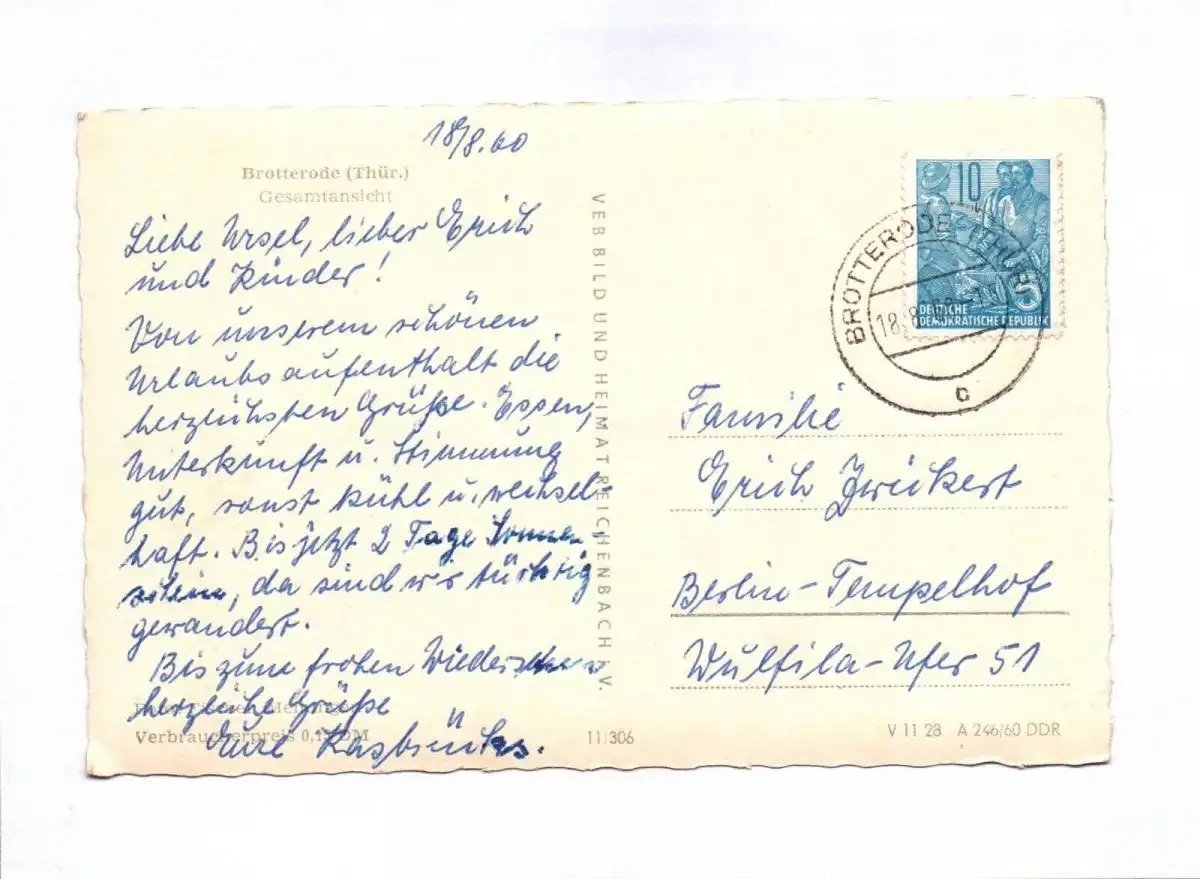 18/8.60
Brotterode (Thür.)
Gesamtansicht
Liebe Ursel, lieber Erich
und Kinder!
Von unserem schönen
Urlaubsaufenthalt die
herzlichsten Grüße. Essen,
Unterkunft u. Stimmung
gut, sonst kühl u. wechsel-
haft. Bis jetzt 2 Tage Sonnen-
schein, da sind wir tüchtig
gewandert.
Bis zum frohen Wiedersehen
herzliche Grüße
Eure
Verbraucherpreis 0,15 DM
VEB BILD UND HEIMAT REICHENBACH i. V.
11/306
10
DEUTSCHE
DEMOKRATISCHE REPUBLIK
5
BROTTERODE (THÜR)
18.8.60
c
Familie
Erich Zwickert
Berlin-Tempelhof
Wulfila-Ufer 51
V 11 28 A 246/60 DDR